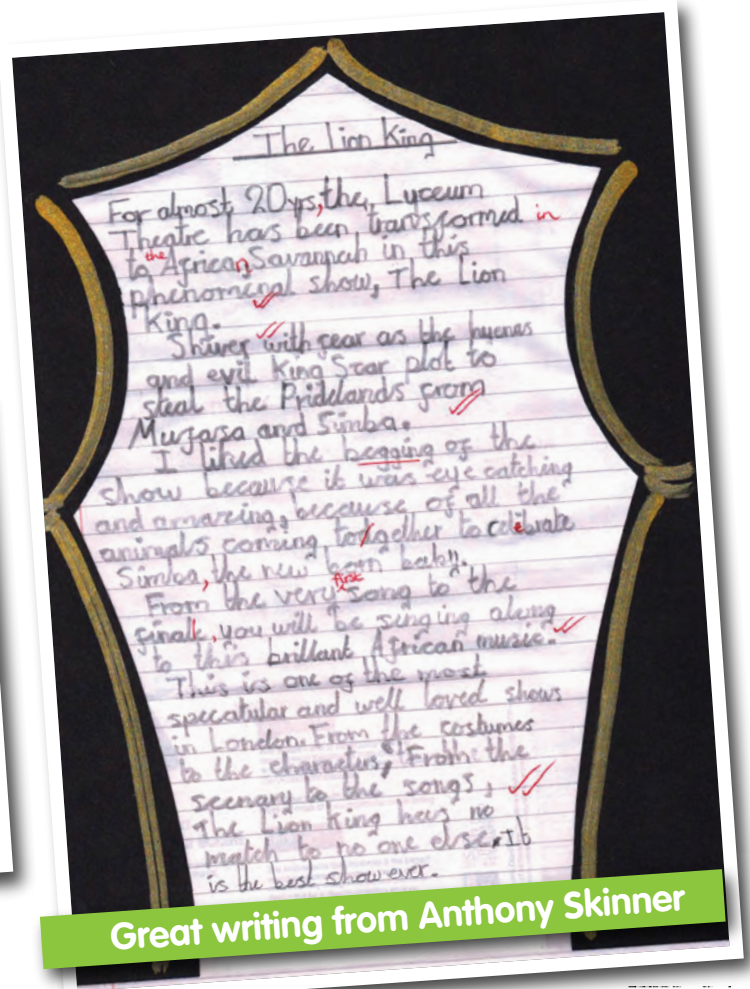 The Lion King
For almost 20yrs, the, Lyceum
Theatre has been transformed in
to the African Savannah in this
phenomenal show, The Lion
King.
Shiver with fear as the hyenas
and evil King Scar plot to
steal the Pridelands from
Mufasa and Simba.
I liked the begging of the
show because it was eye catching
and amazing, because of all the
animals coming together to celebrate
Simba, the new born baby.
From the very first song to the
finale, you will be singing along
to this brillant African music.
This is one of the most
specatular and well loved shows
in London. From the costumes
to the characters, From the
scenary to the songs,
The Lion King has no
match to no one else. It
is the best show ever.
Great writing from Anthony Skinner